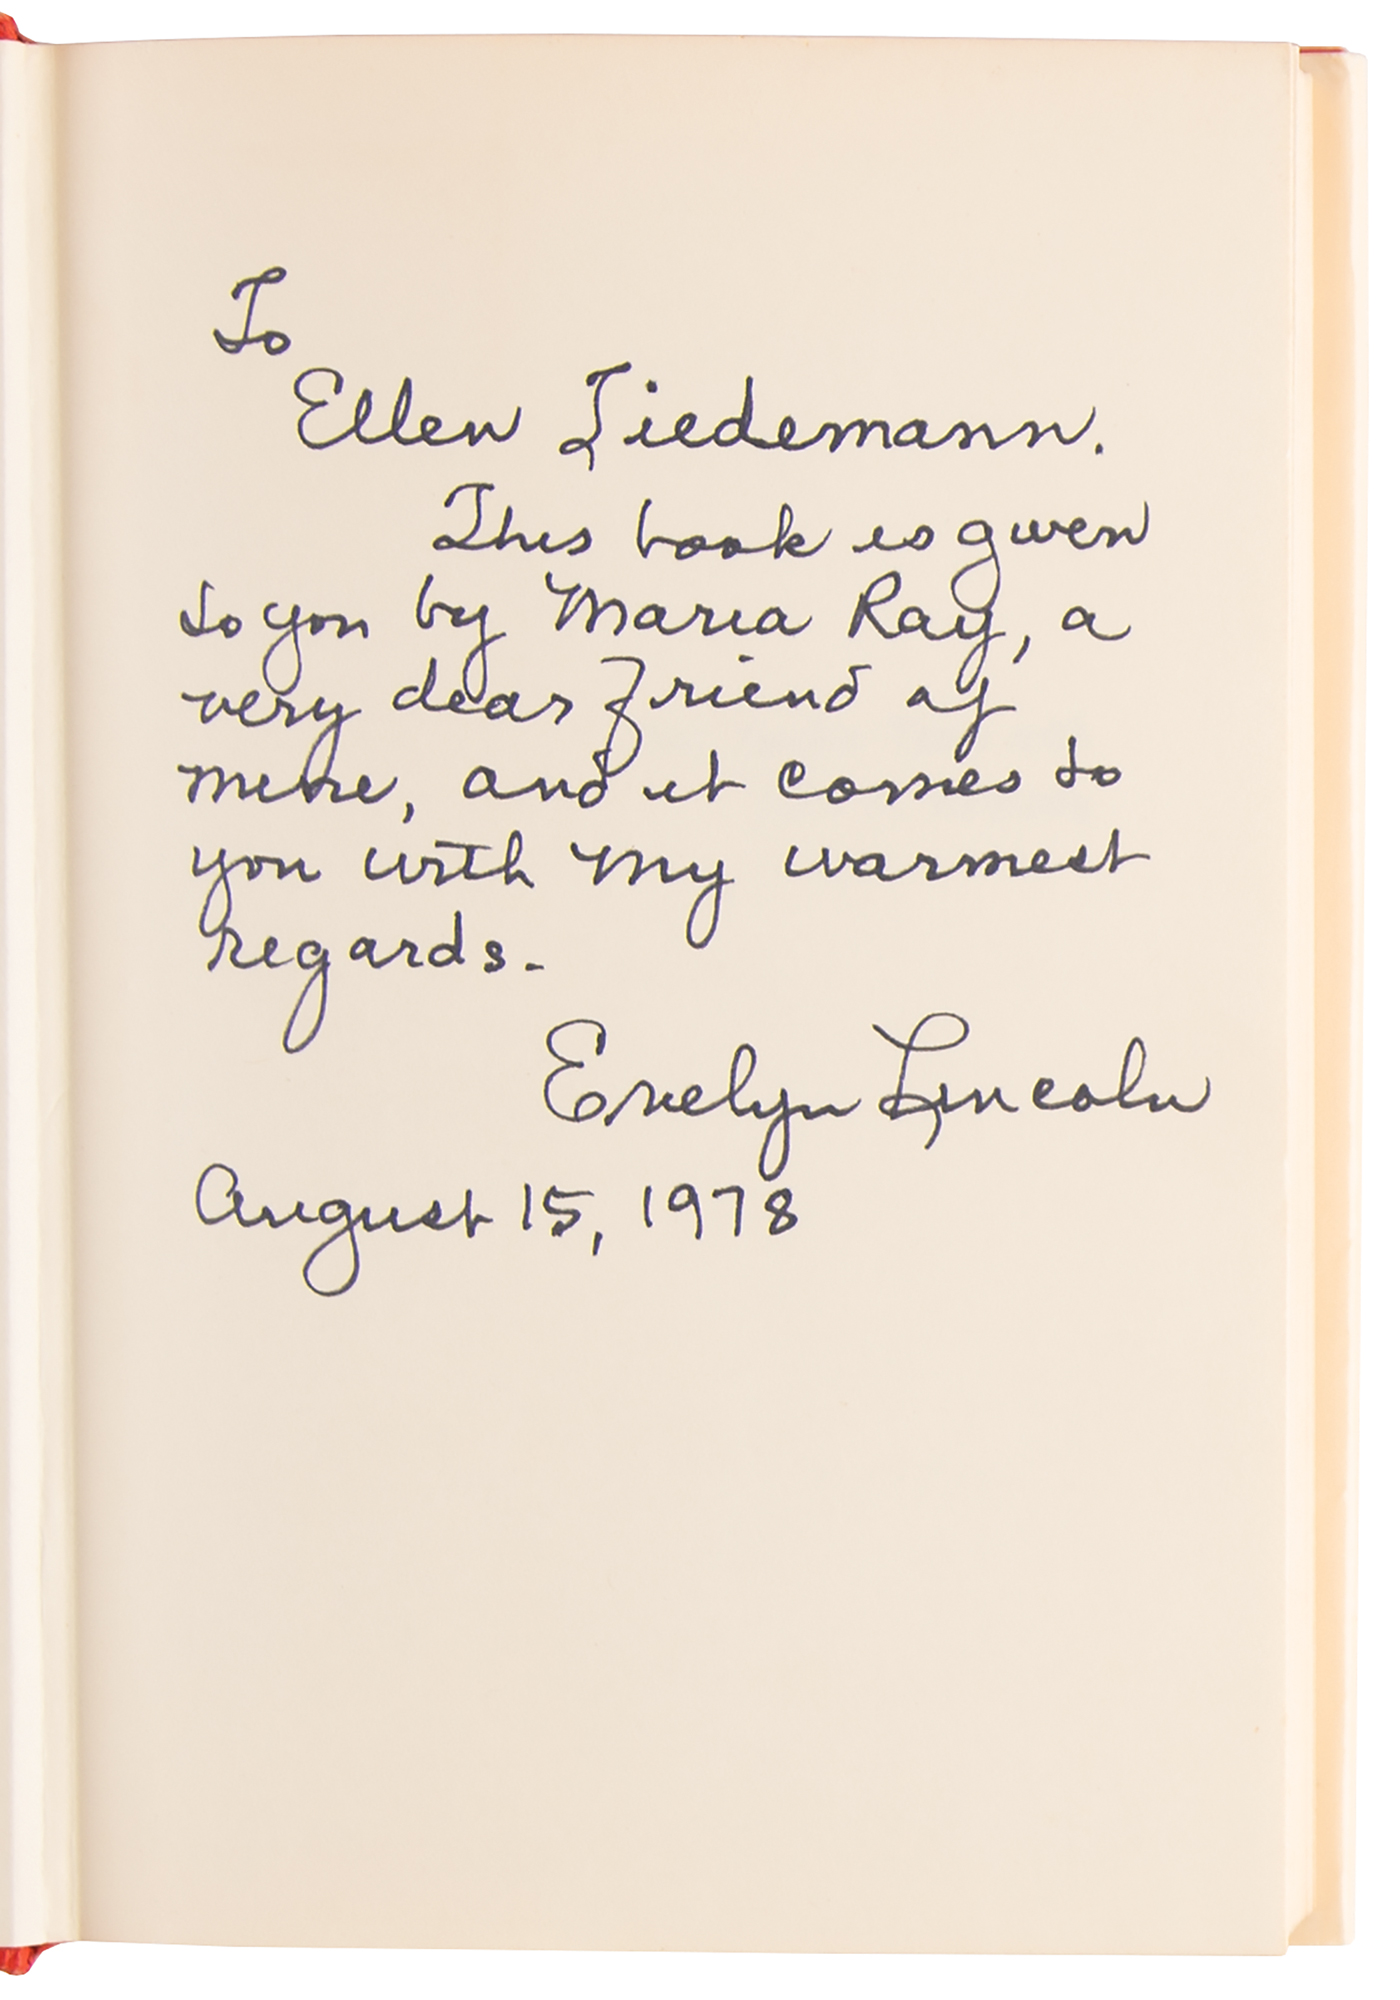 To
Ellen Tiedemann.
This book is given
to you by Maria Ray, a
very dear friend of
mine, and it comes to
you with my warmest
regards.
Evelyn Lincoln
August 15, 1978